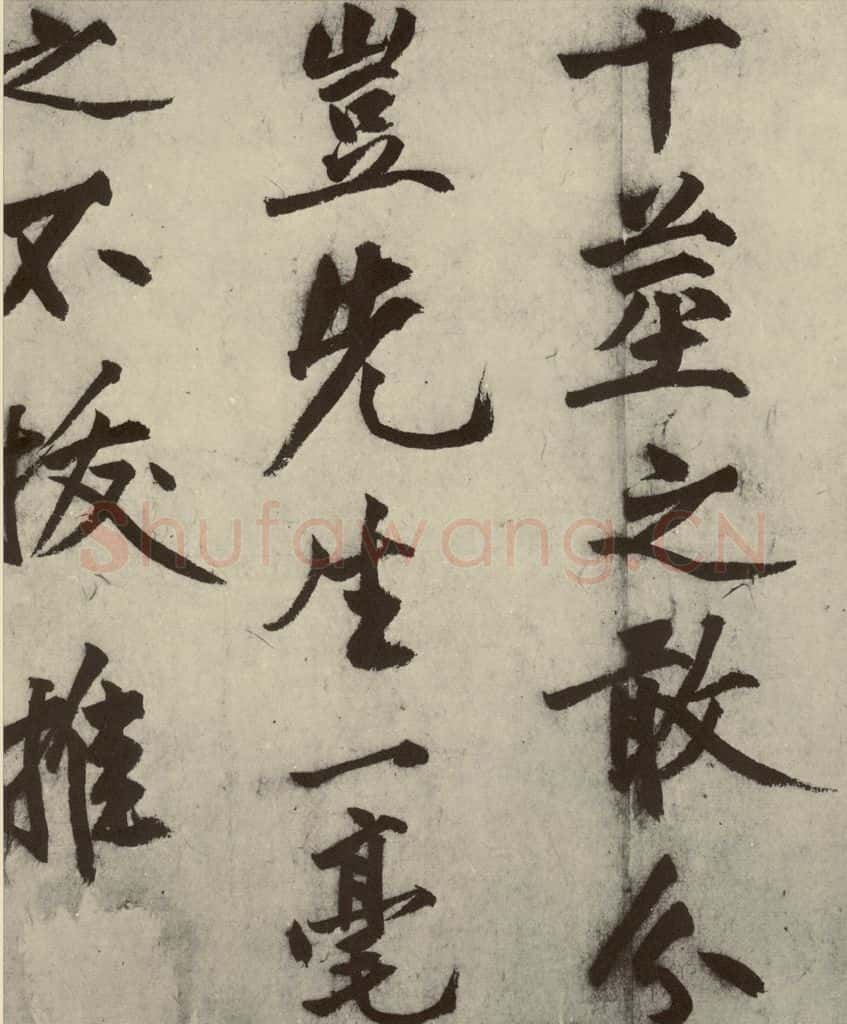 十莖之敢分
豈先生一毫
之不拔推
Shufawang.CN